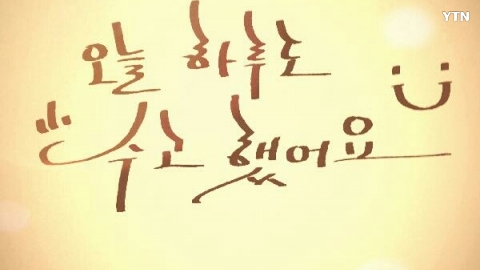 YTN
오늘 하루도
수고 했어요